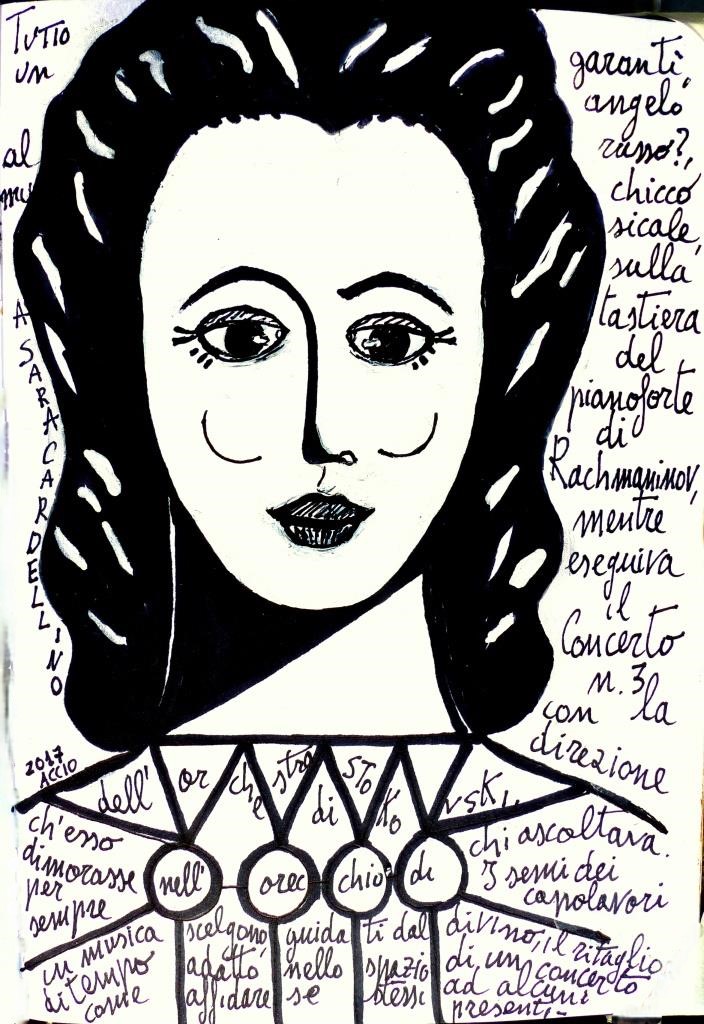 Tutto
un
al
mu
A SARA CARDELLINO
2017
ACCIO
garanti,
angelo
russo?,
chicco
sicale,
sulla
tastiera
del
pianoforte
di
Rachmaninov,
mentre
eseguiva
il
Concerto
n. 3
con la
direzione
dell' or che stra di STO Ko vski,
ch'esso
dimorasse
per
sempre
nell' orec chio di
chi ascoltava.
I semi dei
capolavori
in musica
di tempo
come
scelgono,
adatto
affidare
guida
nello
se
ti dal
spazio
stessi
divino, il ritaglio
di un concerto
ad alcuni
presenti,-